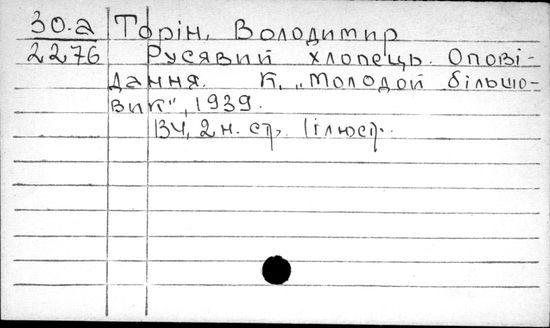 30.а Торін, Володимир
2276 Русявий хлопець. Опові-
дання. К. „Молодой більшо-
вик", 1939.
134, 2 н. стр. ілюстр.